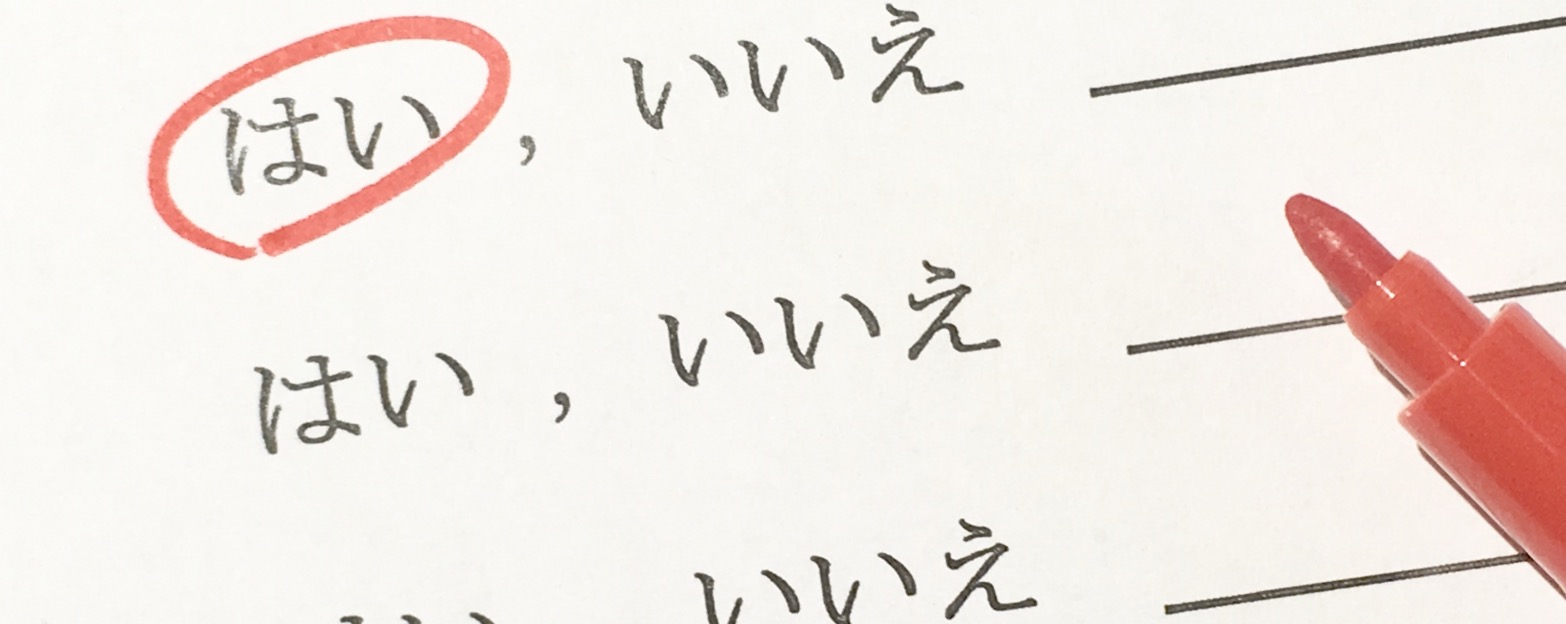 はい , いいえ
はい , いいえ
いいえ